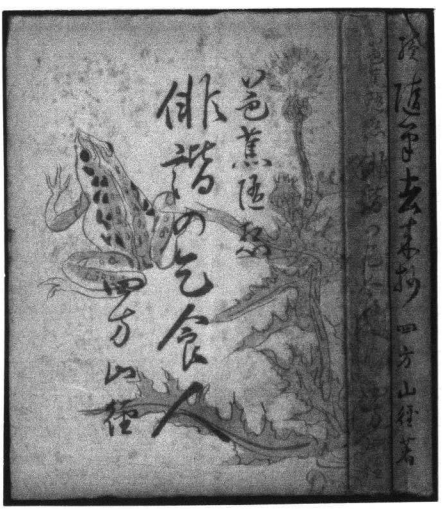 隨筆去来抄 四方山径著
芭蕉隨想
俳諧の乞食人
四方山径